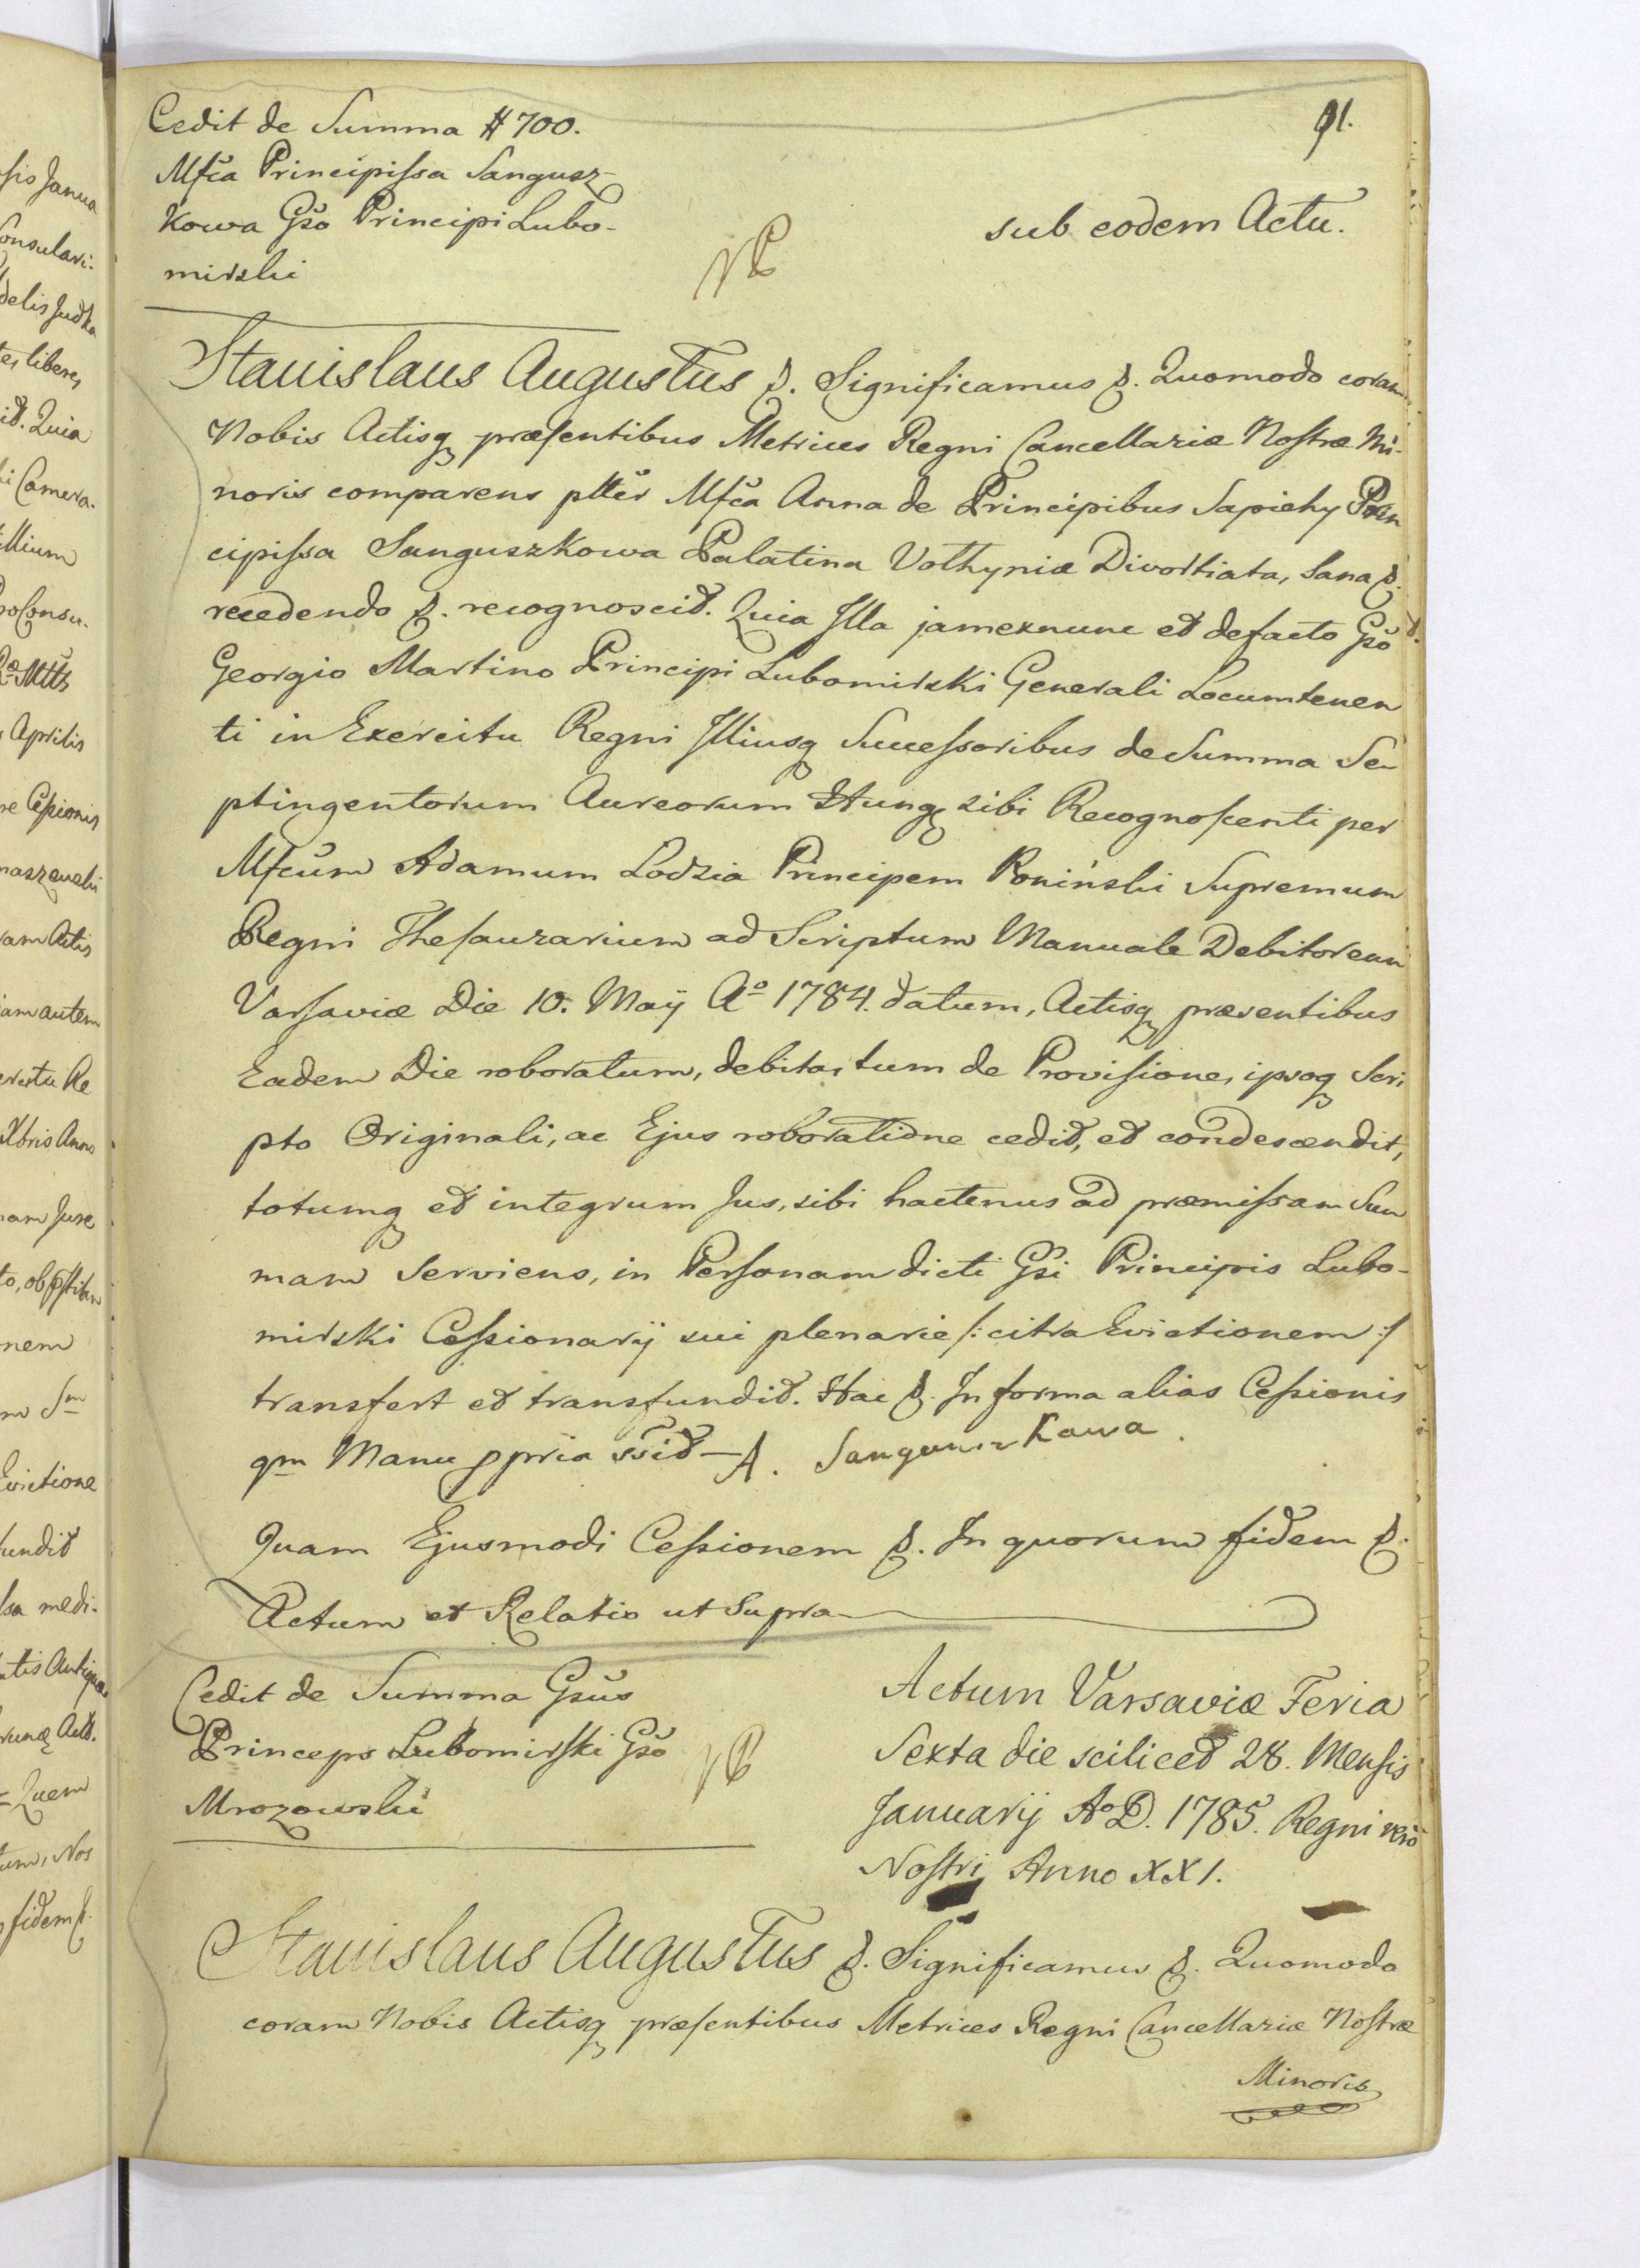 91.
Cedit de Summa # 700.
Mfca Principissa Sangusz-
kowa Gso Principi Lubo-
mirski
sub eodem Actu.
NB
Stanislaus Augustus &. Significamus &. Quomodo coram
Nobis Actisq præsentibus Metrices Regni Cancellariæ Nostræ Mi-
noris comparens plter Mfca Anna de Principibus Sapiehy Prin
cipissa Sanguszkowa Palatina Volhyniæ Divortiata, Sana &.
recedendo &. recognoscit. Quia Illa jam exnunc et defacto Gso
Georgio Martino Principi Lubomirski Generali Locumtenen
ti in Exercitu Regni Illiusq Successoribus de Summa Se
ptingentorum Aureorum Hung sibi Recognoscenti per
Mfcum Adamum Lodzia Principem Poniński Supremum
Regni Thesaurarium ad Scriptum Manuale Debitoreum
Varsaviæ Die 10. Maÿ Aº 1784. datum, Actisq præsentibus
Eadem Die roboratum, debita, tum de Provisione, ipsoq Scri
pto Originali, ac Ejus roboratione cedit, et condescendit,
totumq et integrum Jus, sibi hactenus ad præmissam Sum
mam Serviens, in Personam dicti Gsi Principis Lubo-
mirski Cessionarÿ sui plenarie /: citra Evictionem :/
transfert et transfundit. Hac &. In forma alias Cessionis
qm Manu ppria ssit — A. Sanguszkowa.
Quam Ejusmodi Cessionem &. In quorum fidem &.
Actum et Relatio ut Supra
Cedit de Summa Gsus
Princeps Lubomirski Gso
Mrozowski
NB
Actum Varsaviæ Feria
Sexta die scilicet 28. Mensis
Januarÿ AoD. 1785. Regni vero
Nostri Anno XXI.
Stanislaus Augustus &. Significamus &. Quomodo
coram Nobis Actisq præsentibus Metrices Regni Cancellariæ Nostræ
Minoris